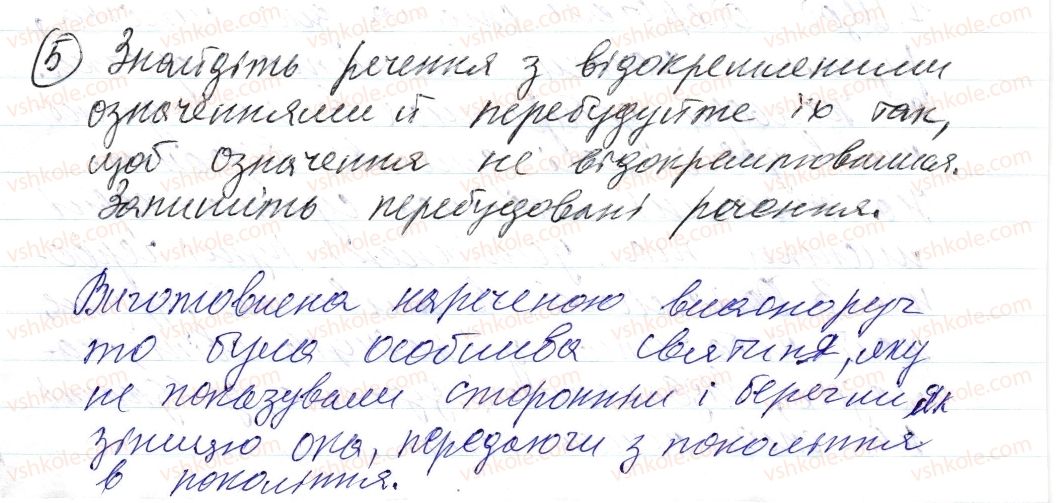 5 Знайдіть речення з відокремленими
означеннями й перебудуйте їх так,
щоб означення не відокремлювалися.
Запишіть перебудовані речення.
Виготовлена нареченою власноруч
то була особлива святиня, яку
не показували стороннім і берегли як
зіницю ока, передаючи з покоління
в покоління.